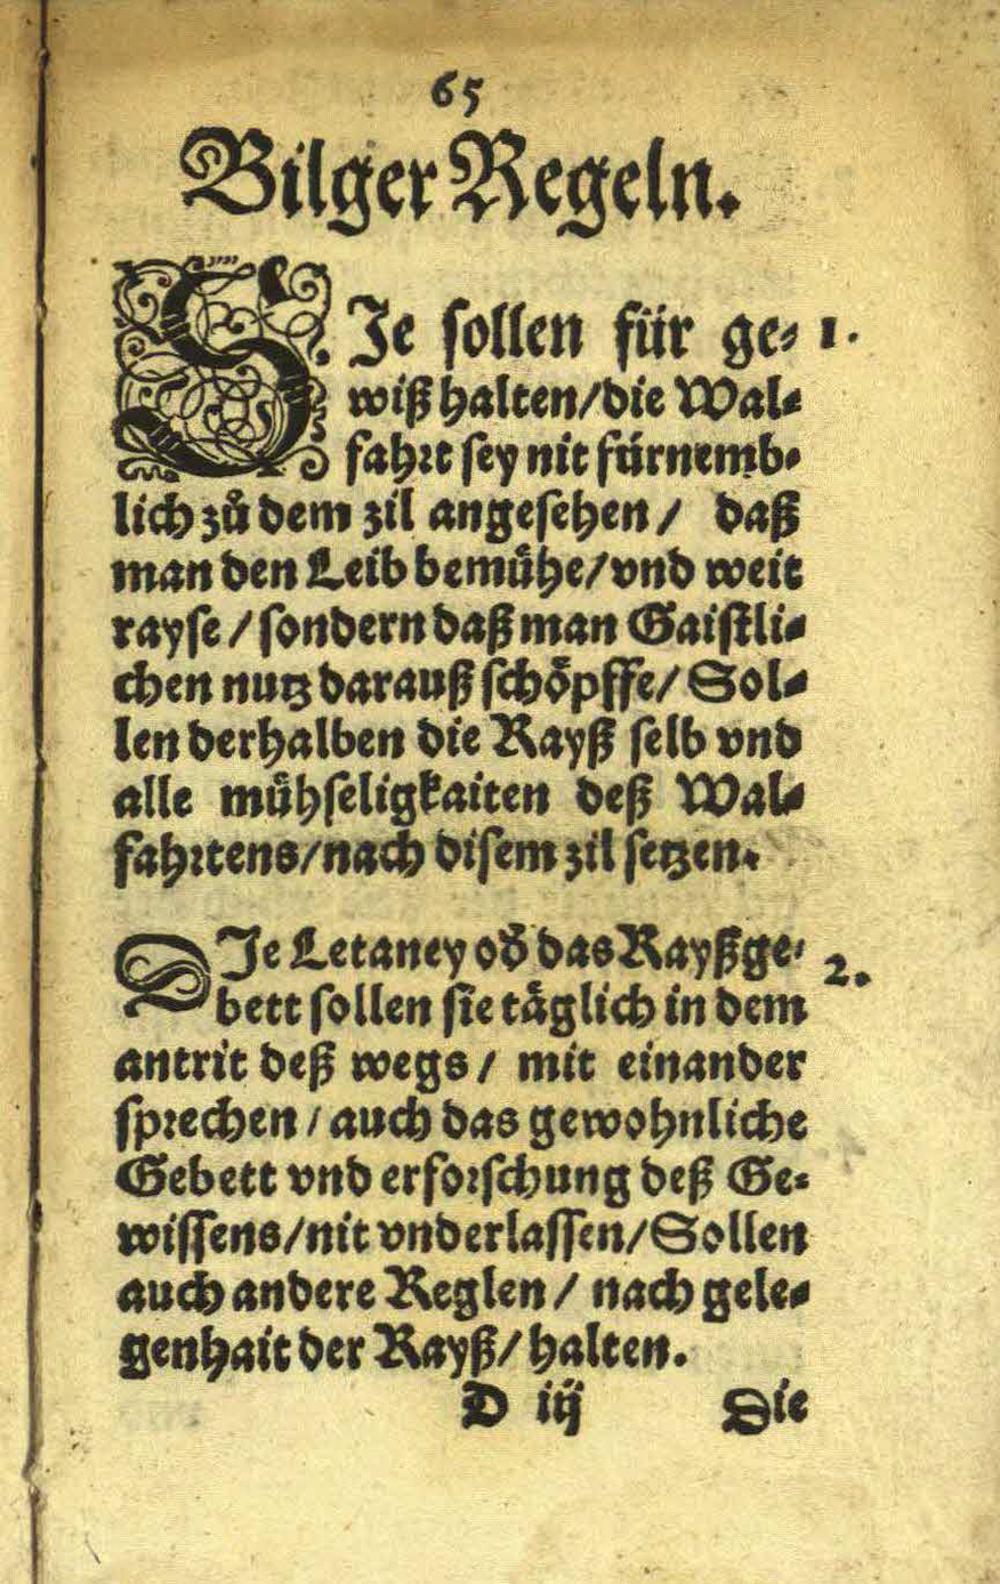 65
Bilger Regeln.
SIe sollen für ge⸗ 1.
wiß halten/die Wal⸗
fahrt sey nit fürnemb⸗
lich zů dem zil angesehen/ daß
man den Leib bemühe/vnd weit
rayse/sondern daß man Gaistli⸗
chen nutz darauß schöpffe/Sol⸗
len derhalben die Rayß selb vnd
alle mühseligkaiten deß Wal⸗
fahrtens/nach disem zil setzen.
DIe Letaney oď das Rayßge⸗ 2.
bett sollen sie täglich in dem
antrit deß wegs/ mit einander
sprechen/auch das gewohnliche
Gebett vnd erforschung deß Ge⸗
wissens/nit vnderlassen/Sollen
auch andere Reglen/ nach gele⸗
genhait der Rayß/halten.
D iij Die